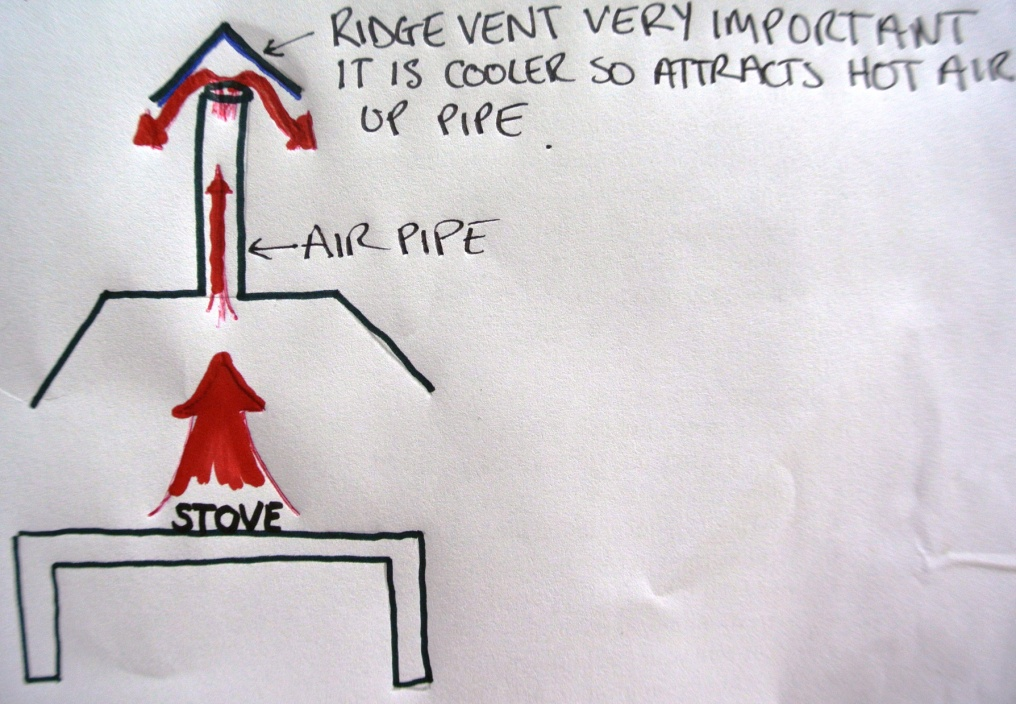 RIDGE VENT VERY IMPORTANT
IT IS COOLER SO ATTRACTS HOT AIR
UP PIPE.
AIR PIPE
STOVE